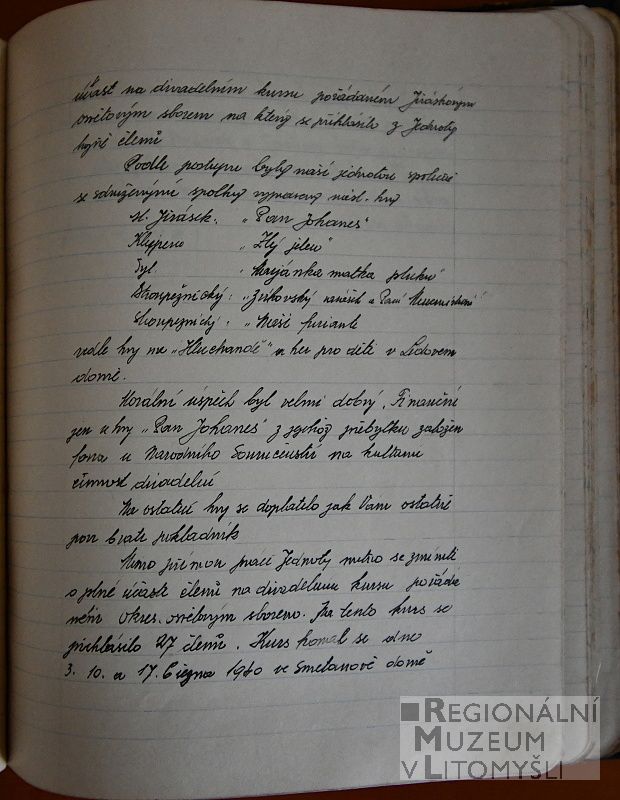 účast na divadelním kursu pořádaném Jiráskovým
osvětovým sborem na který se přihlásilo z Jednoty
členů
Podle postupu byly naší jednotou společně
se sdruženými spolky vypraveny násl. hry
Al. Jirásek: „Pan Johanes"
Klicpera „Zlý jelen"
Tyl „Marjánka matka pluku"
Stroupežnický: „Zvíkovský rarášek a Paní Mincmistrová"
Stroupežnický: „Naši furianti
vedle hry na „Hluchandě" a her pro děti v Lidovém
domě.
Morální úspěch byl velmi dobrý. Finanční
jen u hry „Pan Johanes" z jehož přebytku založen
fond u Národního Souručenství na kulturní
činnost divadelní
Na ostatní hry se doplatilo jak Vám ostatně
poví bratr pokladník
Mimo přímou práci Jednoty nutno se zmíniti
o plné účasti členů na divadelním kursu pořáda
ném Okres. osvětovým sborem. Na tento kurs se
přihlásilo 27 členů. Kurs konal se dne
3. 10. a 17. března 1940 ve Smetanově domě
REGIONÁLNÍ
MUZEUM
V LITOMYŠLI